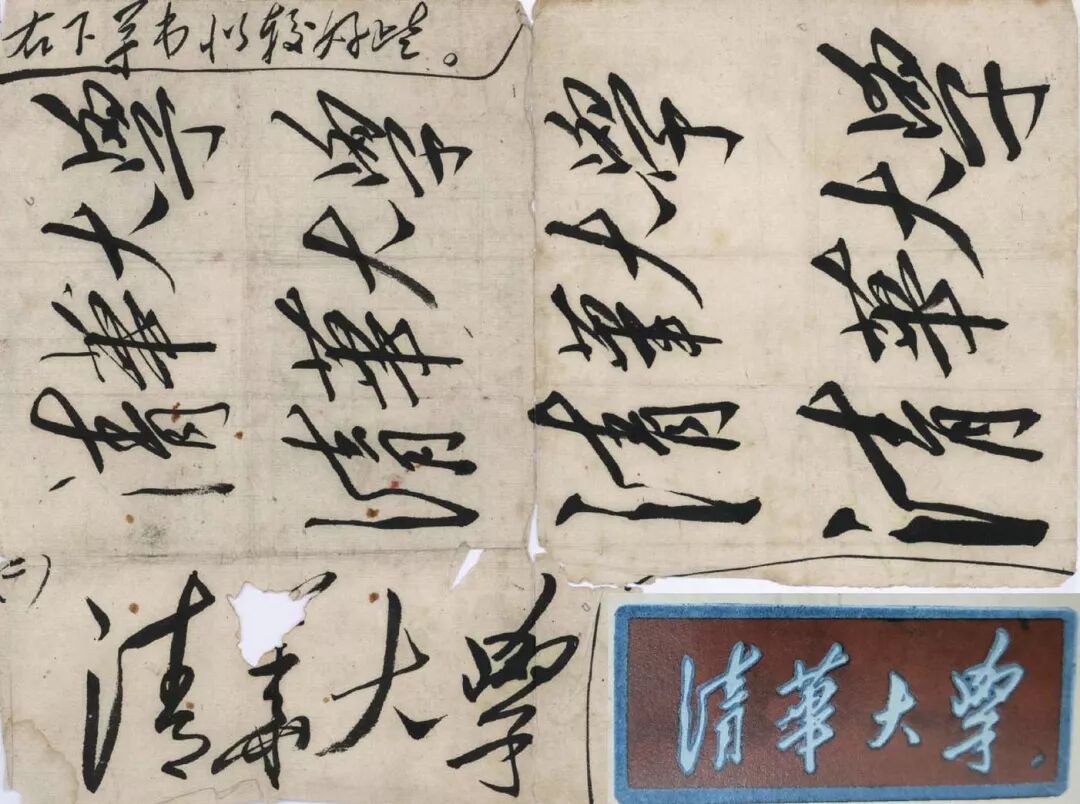 右下草书似较好些。
清華大學
清華大學
清華大學
清華大學
二）
清華大學
清華大學